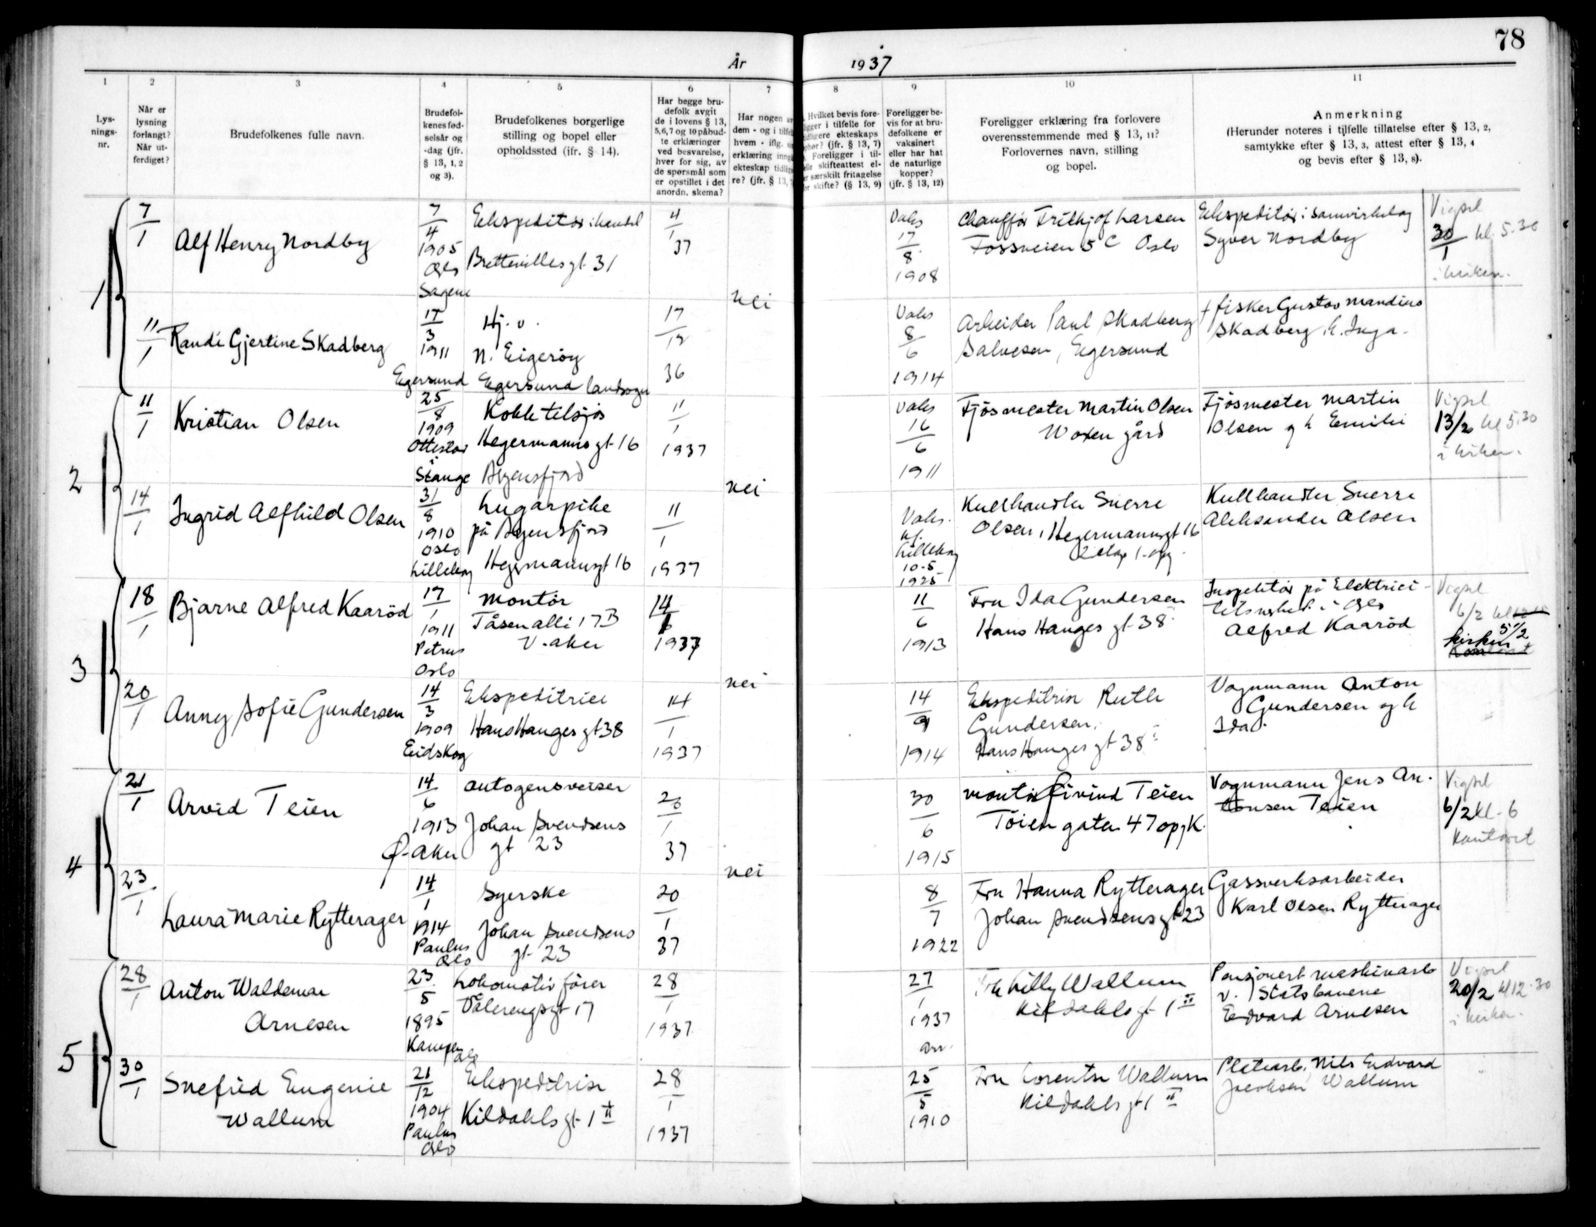 78
År 1937
1 2 3 4 5 6 7 8 9 10 11
Lysnings-nr.
Når er lysning forlangt? Når utferdiget?
Brudefolkenes fulle navn.
Brudefolkenes fødselsår og -dag (jfr. § 13, 1, 2 og 3).
Brudefolkenes borgerlige stilling og bopel eller opholdssted (ifr. § 14).
Har begge brudefolk avgit de i lovens § 13, 5,6,7 og 10 påbudte erklæringer ved besvarelse, hver for sig, av de spørsmål som er opstillet i det anordn. skema?
Har nogen
dem - og i tilf
hvem - iflg.
erklæring inng
ekteskap tidlig
re? (jfr. § 13,
Hvilket bevis fore-
i tilfelle for
ekteskaps
(jfr. § 13, 7)
Foreligger i til-
skifteattest el-
særskilt fritagelse
skifte? (§ 13, 9)
Foreligger bevis for at brudefolkene er vaksinert eller har hat de naturlige kopper? (jfr. § 13, 12)
Foreligger erklæring fra forlovere overensstemmende med § 13, 11? Forlovernes navn, stilling og bopel.
Anmerkning
(Herunder noteres i tilfelle tillatelse efter § 13, 2, samtykke efter § 13, 3, attest efter § 13, 4 og bevis efter § 13, 8).
1
7/1
Alf Henry Nordby
7/4 1905 Oslo Sagene
Ekspeditør i handel
Brettevillesgt 31
4/1 37
nei
Vaks 17/8 1908
Chauffør Fritkjof Larsen
Fossveien 5 C Oslo
Ekspeditør i samvirkelag
Syver Nordby
Vigsel
30/1 kl 5.30
i kirken.
11/1
Randi Gjertine Skadberg
17/3 1911 Egersund
Hj. v.
N. Eigerøy
Egersund landsogn
17/12 36
Vaks 8/6 1914
Arbeider Paul Skadberg
Salvesen, Egersund
† fisker Gustav Mandius
Skadberg h. Inga.
2
11/1
Kristian Olsen
25/8 1909 Ottestad i Stange
Kokk tilsjøs
Hegermanns gt 16
Bgensfjord
11/1 1937
nei
Vaks 16/6 1911
Fjøsmester Martin Olsen
Woxen gård
Fjøsmester Martin
Olsen og h Emilie
Vigsel
13/2 kl 5.30
i kirken.
14/1
Ingrid Alfhild Olsen
31/8 1910 Oslo Lilleborg
Lugarpike
på Bgensfjord
Hegermannsgt 16
11/1 1937
Vaks. Lilleborg 10-5 1925
Kullhandler Sverre
Olsen, Hegermannsgt 16
Kullhandler Sverre
Aleksander Olsen
3
18/1
Bjarne Alfred Kaarød
17/1 1911 Petrus Oslo
Montør
Tåsen alle 17B
V. aker
14/1 1937
nei
11/6 1913
Fru Ida Gundersen
Hans Hauges gt 38
Inspektør på Elektrici-
i Oslo
Alfred Kaarød
Vigsel
6/2 kl
5 1/2
kirken
20/1
Anny Sofie Gundersen
14/3 1909 Eidskog
Ekspeditrice
Hans Hauges gt 38
14/1 1937
14/9 1914
Ekspeditrise Ruth
Gundersen,
Hans Hauges gt 38
Vognmann Anton
Gundersen og h
Ida.
4
21/1
Arvid Teien
14/6 1913 Ø. Aker
Autogensveiser
Johan Svendsens
gt 23
20/1 37
nei
30/6 1915
Montør Øivind Teien
Tøien gaten 47 opg K.
Vognmann Jens An-
tonsen Teien
Vigsel
6/2 kl. 6
kontoret
23/1
Laura Marie Rytterager
14/1 1914 Paulus Oslo
Syerske
Johan Svendsens
gt 23
20/1 37
8/7 1922
Fru Hanna Rytterager
Johan Svendsens gt 23
Gassverksarbeider
Karl Olsen Rytterager
5
28/1
Anton Waldemar
Arnesen
23/5 1895 Kampen Oslo
Lokomotivfører
Vålerengsgt 17
28/1 1937
27/1 1937
Frk Lilly Wallum
Kildahls gt 1 II
Pensjonert maskinarb
v. Statsbanene
Edvard Arnesen
Vigsel
20/2 kl 12.30
i kirken.
30/1
Snefrid Eugenie
Wallum
21/12 1904 Paulus Oslo
Ekspeditrise
Kildahls gt 1 II
28/1 1937
25/5 1910
Fru Lorentse Wallum
Kildahls gt 1 II
Platearb. Nils Edvard
Jacobsen Wallum